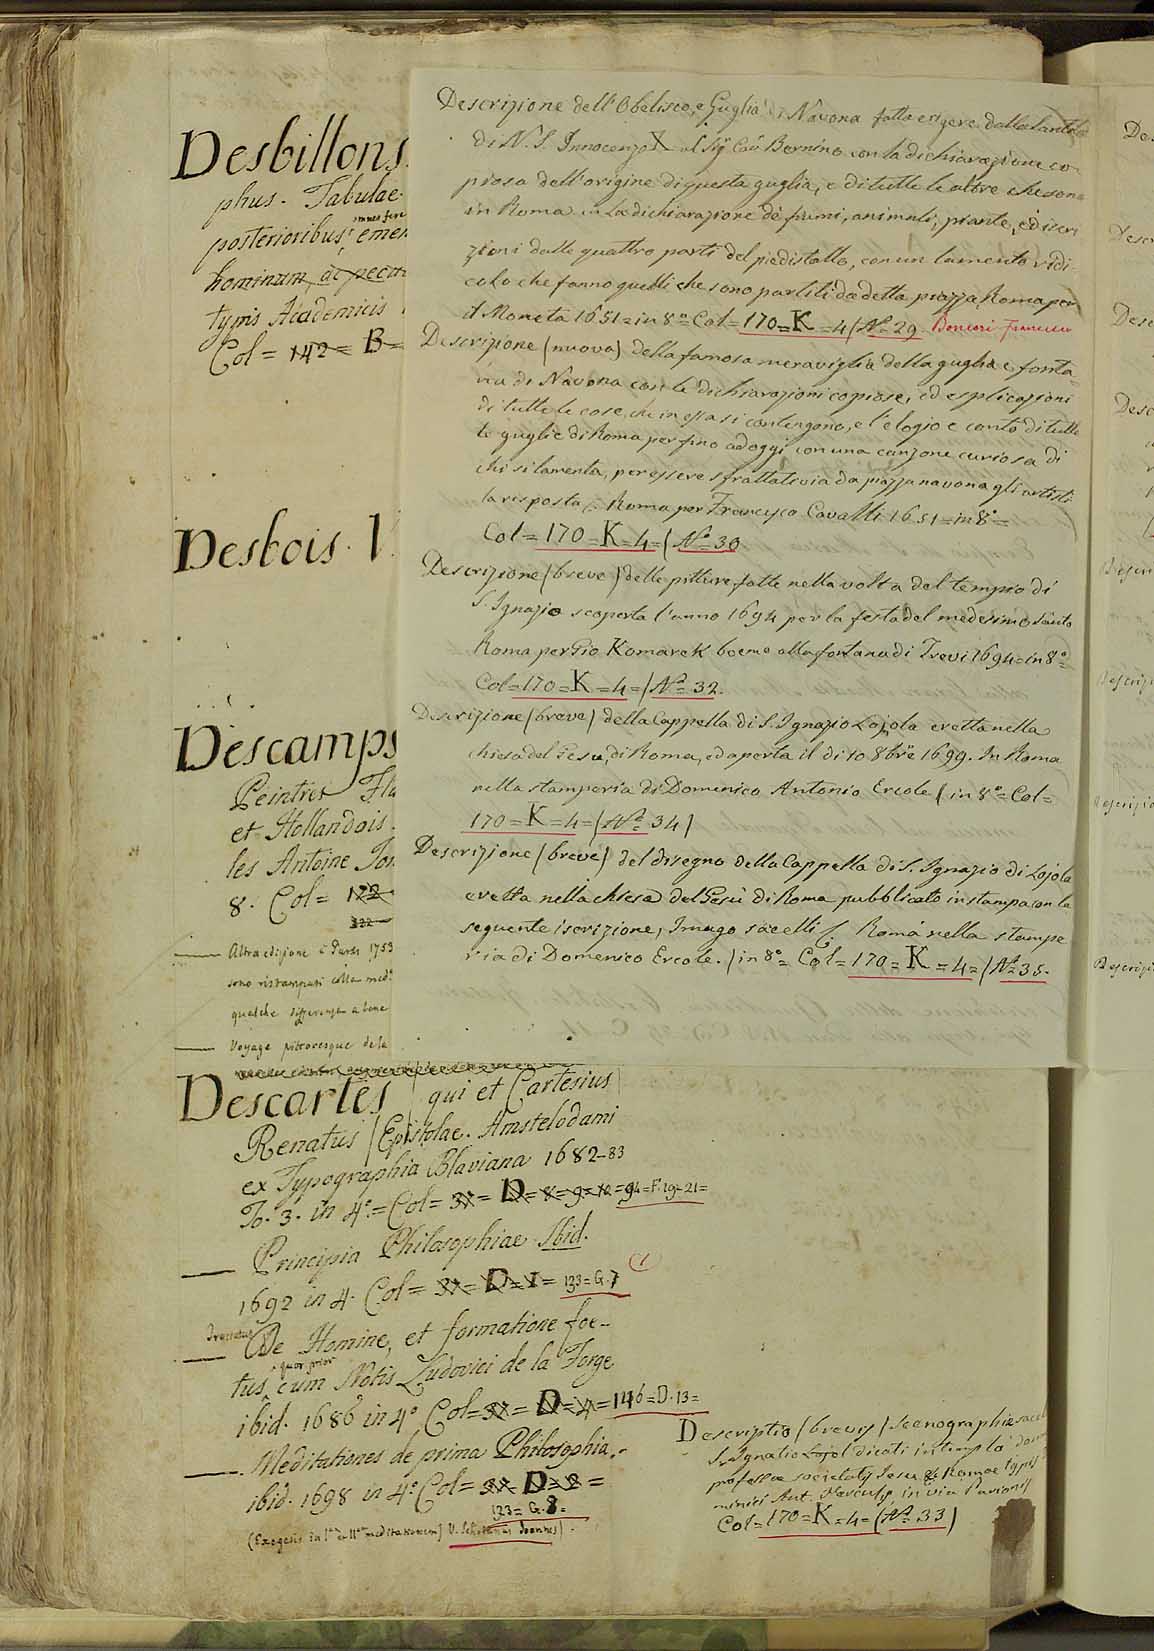 Desbillons
phus. Tabulae
omnes fere
posterioribus, emen
hominum, ac pecu
typis Academicis
Col = 142 = B =
Desbois.
Descamps
Peintres Fla
et Hollandois.
les Antoine Jom
8. Col = 122
322
Altra edizione è Paris 1753
sono ristampati colla med.
qualche differenza a bene
Voyage pittoresque de la
Descrizione dell'Obelisco, e Guglia di Navona fatta erigere dalla Santità
di N. S. Innocenzo X al Sig. Cav. Bernino con la dichiarazione co
piosa dell'origine di questa guglia, e di tutte le altre che sono
in Roma la dichiarazione de fiumi, animali, piante, ed iscri
zioni delle quattro parti del piedistallo, con un lamento ridi
colo che fanno quelli che sono partiti da detta piazza, Roma per
il Moneta 1651 = in 8º = Col = 170 = K = 4 (Nº = 29 Francesco
Descrizione (nuova) della famosa meraviglia della guglia e fonta
na di Navona con le dichiarazioni copiose, ed esplicazioni
di tutte le cose, che in essa si contengono, e l'elogio e conto di tutte
le guglie di Roma per fino ad oggi con una canzone curiosa di
chi si lamenta, per essere sfrattati via da piazza navona gli artisti
la risposta. Roma per Francesco Cavalli 1651 = in 8º =
Col = 170 = K = 4 = (Nº = 30
Descrizione (breve) delle pitture fatte nella volta del tempio di
S. Ignazio scoperta l'anno 1694 per la festa del medesimo Santo
Roma per Gio Komarek boemo alla fontana di Trevi 1694 = in 8º =
Col = 170 = K = 4 = (Nº = 32.
Descrizione (breve) della Cappella di S. Ignazio Lojola eretta nella
chiesa del Gesu, di Roma, ed aperta il di 10 8bre 1699. In Roma
nella stamperia di Domenico Antonio Ercole (in 8º = Col =
170 = K = 4 = (Nº = 34)
Descrizione (breve) del disegno della Cappella di S. Ignazio di Lojola
eretta nella chiesa del Gesù di Roma pubblicato in stampa con la
seguente iscrizione, Imago sacelli &. Roma nella stampe
ria di Domenico Ercole. (in 8º = Col = 170 = K = 4 = (Nº = 35.
Descartes (qui et Cartesius
Renatus) Epistolae. Amstelodami
ex Typographia Blaviana 1682-83
To. 3. in 4º = Col = 31 = D = 8 = 9 = 10 = 94 = F. 19 = 21 =
Principia Philosophiae Ibid.
1692 in 4. Col = 31 = D = 1 = 133 = G. 7 (1)
Tractatus
De Homine, et formatione foe-
quor. prior
tus, cum Notis Ludovici de la Forge
ibid. 1686 in 4º Col = 31 = D = 4 = 146 = D. 13 =
Meditationes de prima Philosophia.
ibid. 1698 in 4º Col = 31 = D = 2 =
133 = G. 8 =
(Exegesis in I.am et II.am meditationem) V. Joannes).
Descriptio (brevis) Scenographiae
S. Ignatio Lojol dicati in templo
professae societatis Jesu &. Romae typis
minici Ant. Herculis in via Parionis
Col = 170 = K = 4 = (Nº = 33)